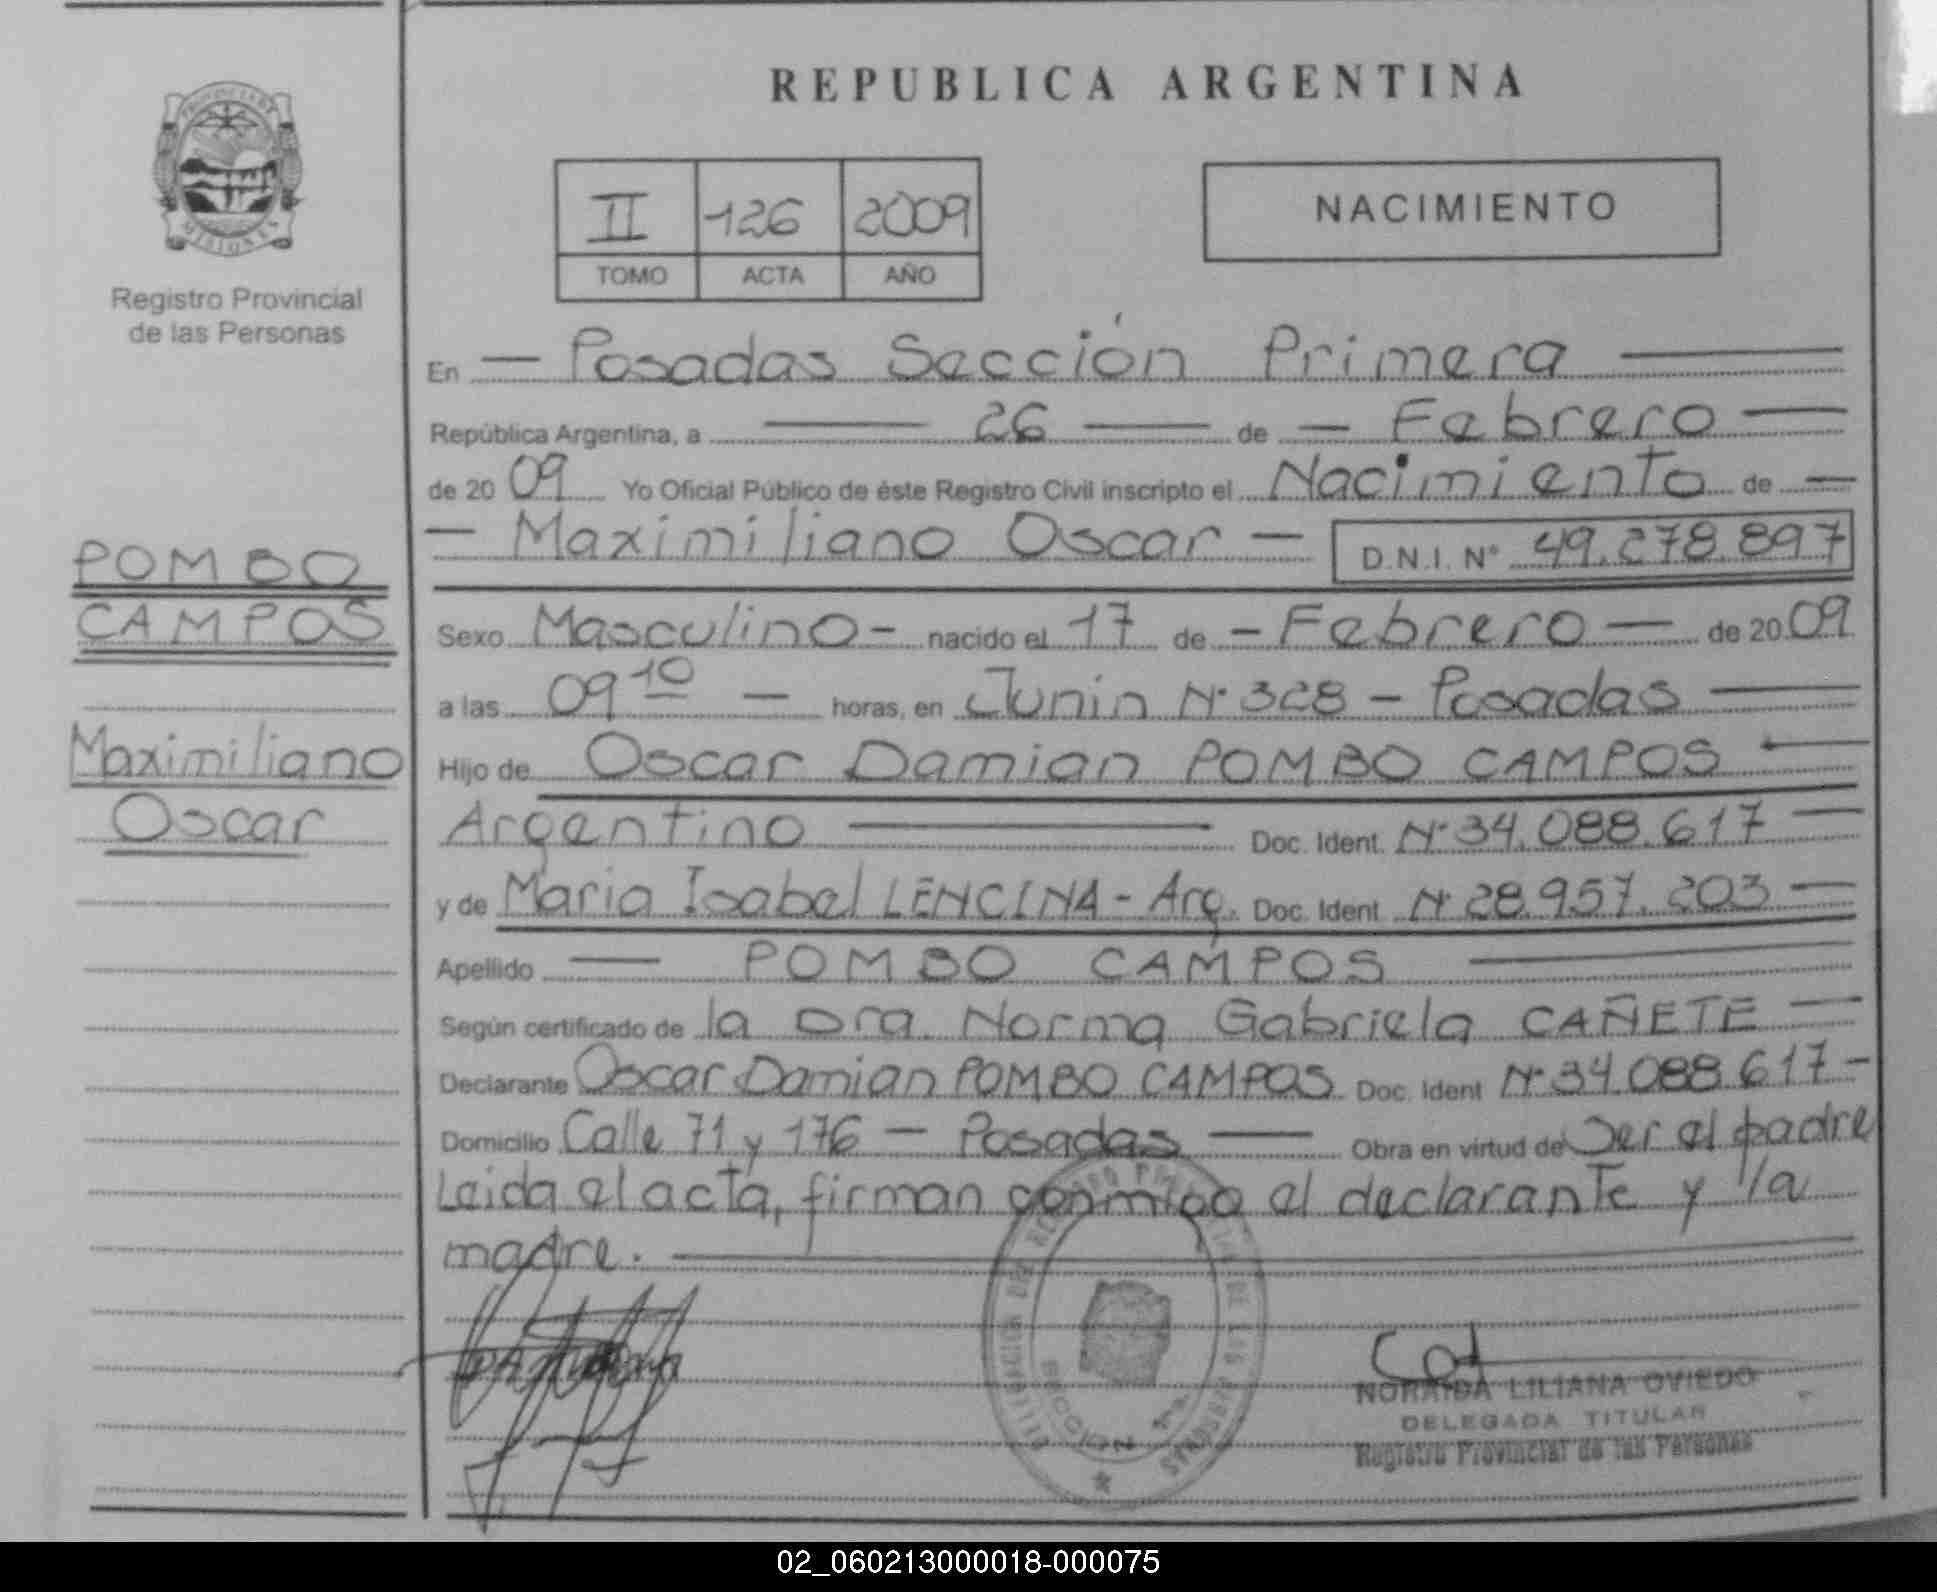 PROVINCIA DE
MISIONES
Registro Provincial
de las Personas
POMBO
CAMPOS
Maximiliano
Oscar
REPUBLICA ARGENTINA
II 126 2009
TOMO ACTA AÑO
NACIMIENTO
En — Posadas Sección Primera —
República Argentina, a — 26 — de — Febrero —
de 20 09 Yo Oficial Público de éste Registro Civil inscripto el Nacimiento de —
— Maximiliano Oscar — D.N.I. N° 49.278.897
Sexo Masculino - nacido el 17 de - Febrero — de 20 09
a las 09 10 — horas, en Junin N° 328 - Posadas —
Hijo de Oscar Damian POMBO CAMPOS —
Argentino — Doc. Ident. N° 34.088.617 —
y de Maria Isabel LENCINA - Arg. Doc. Ident. N° 28.957.203 —
Apellido — POMBO CAMPOS —
Según certificado de la Dra. Norma Gabriela CAÑETE —
Declarante Oscar Damian POMBO CAMPOS Doc. Ident N° 34.088.617 -
Domicilio Calle 71 y 176 — Posadas — Obra en virtud de Ser el padre
Leida el acta, firman conmigo el declarante y la
madre. —
SECCION 1ra.
NORAIDA LILIANA OVIEDO
DELEGADA TITULAR
Registro Provincial de las Personas
02_060213000018-000075